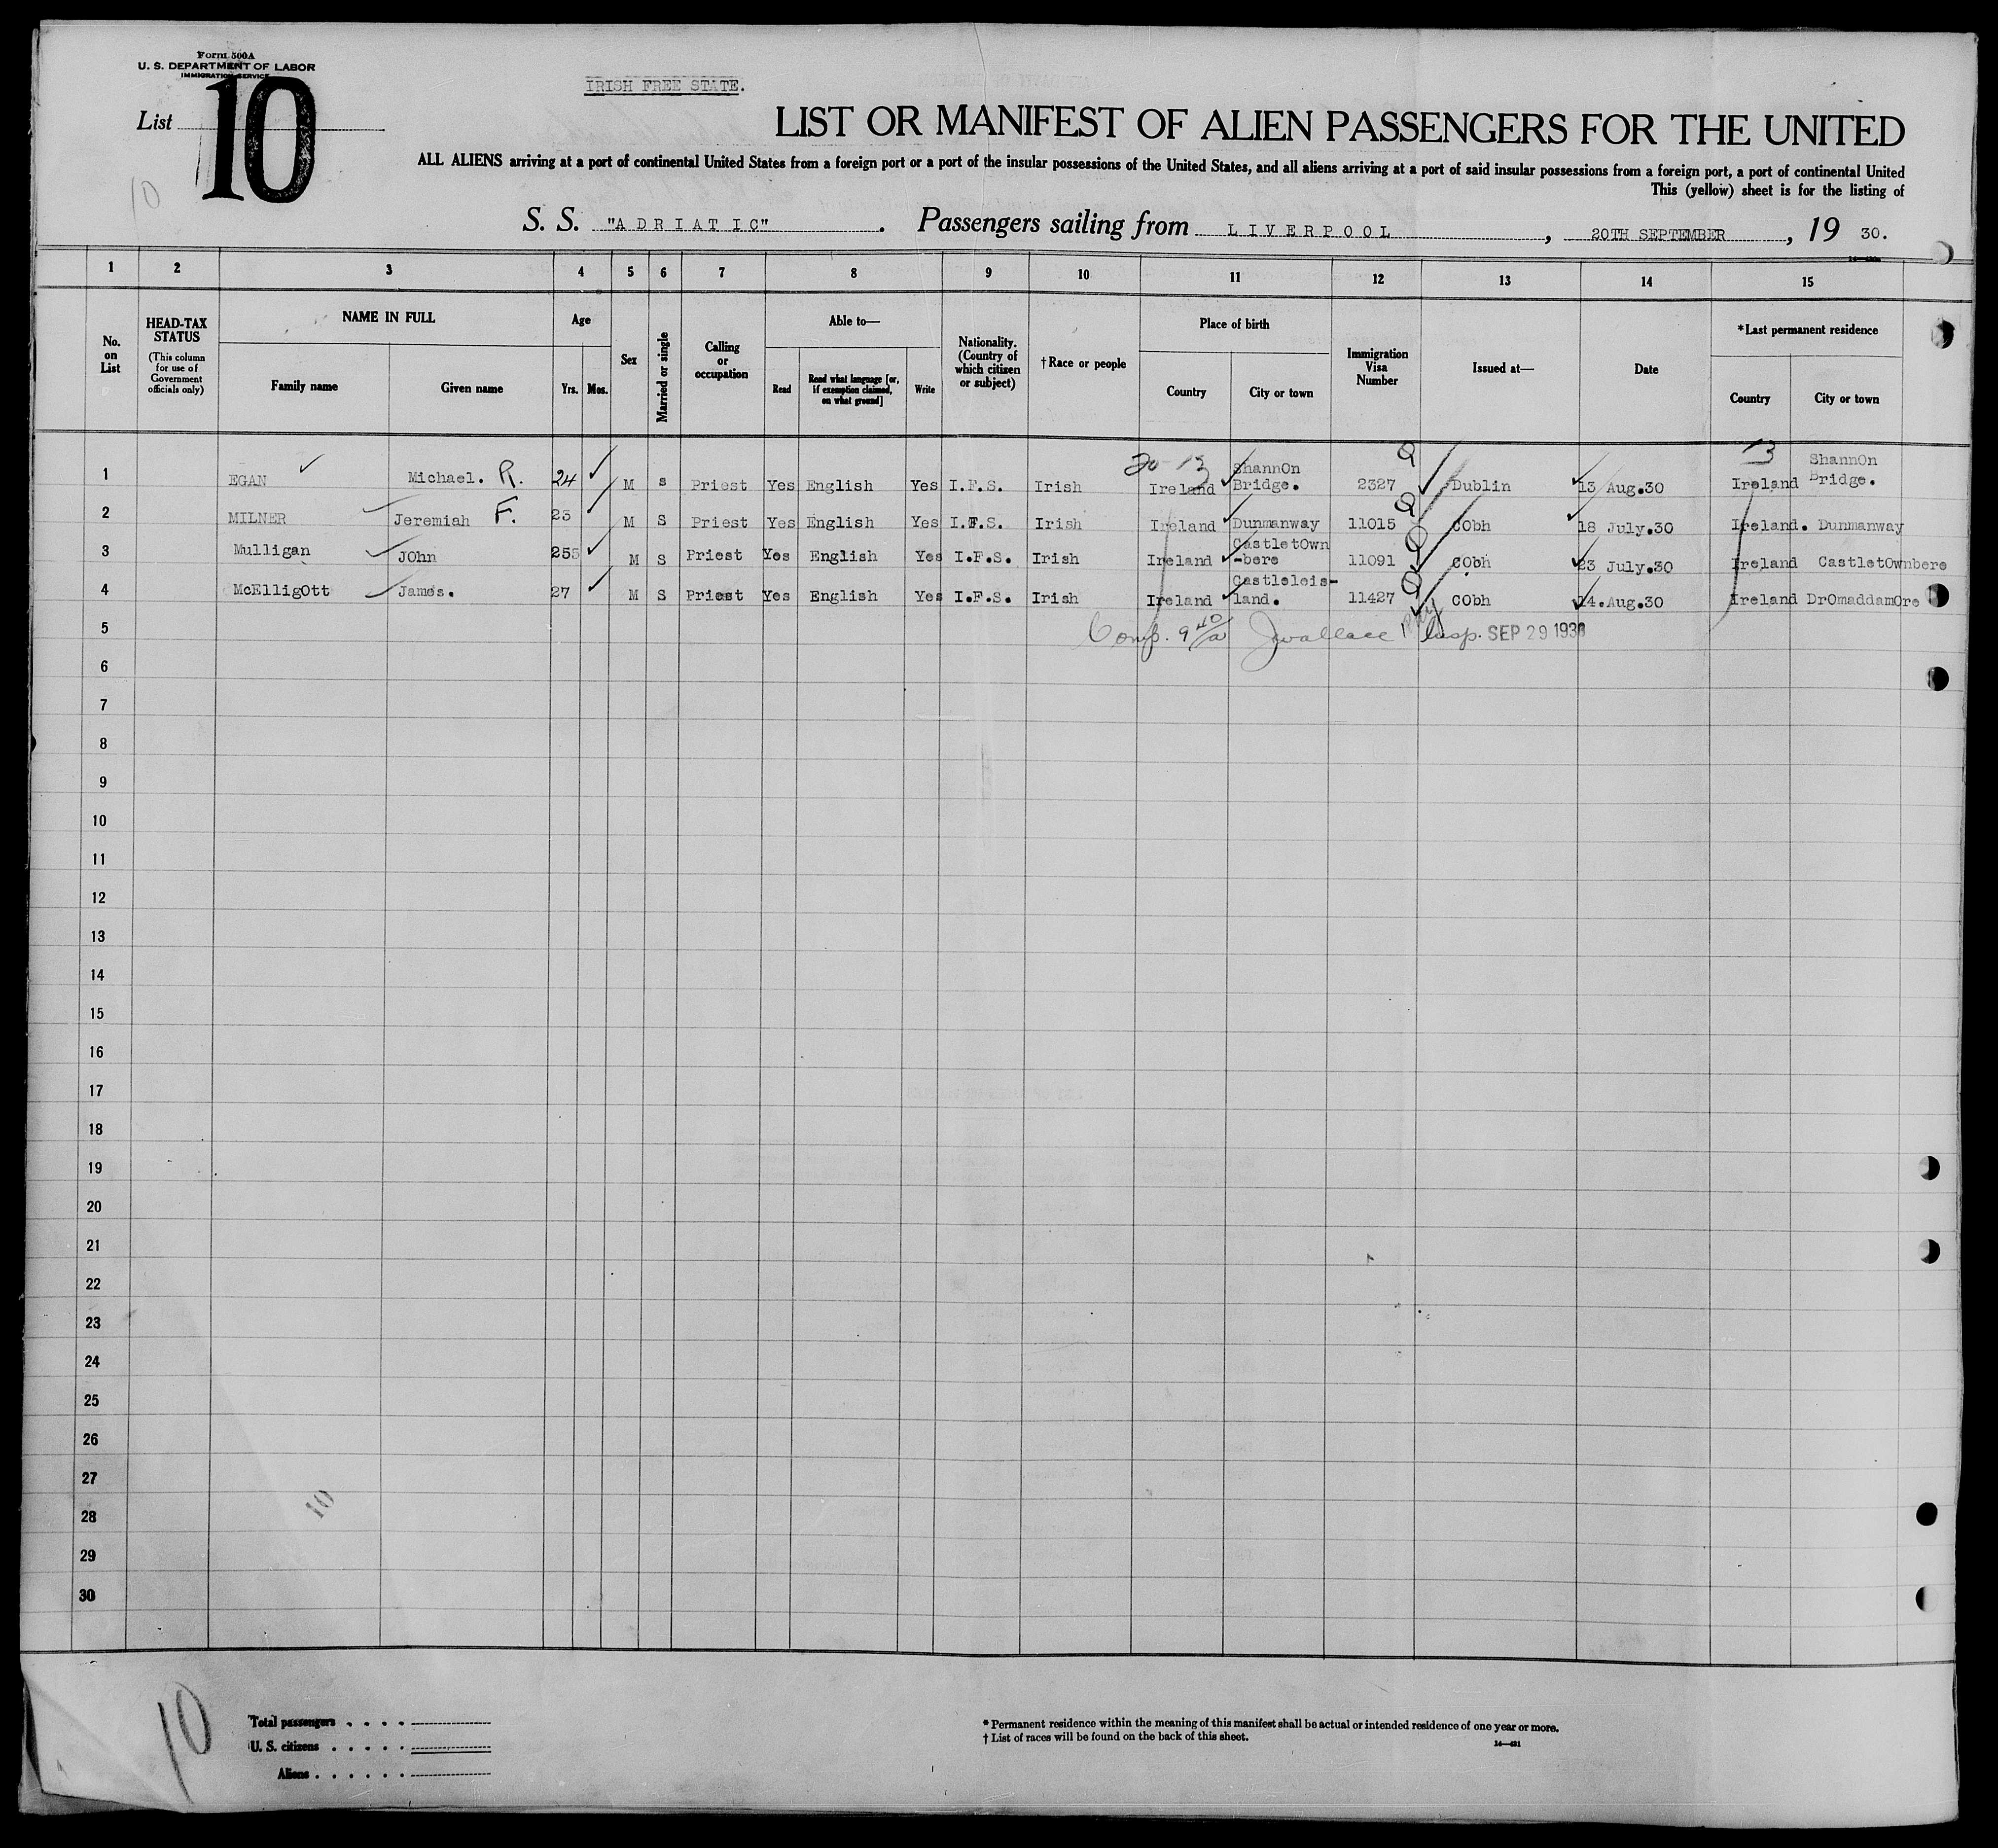 Form 500A
U. S. DEPARTMENT OF LABOR
IMMIGRATION SERVICE
IRISH FREE STATE.
List 10
LIST OR MANIFEST OF ALIEN PASSENGERS FOR THE UNITED
ALL ALIENS arriving at a port of continental United States from a foreign port or a port of the insular possessions of the United States, and all aliens arriving at a port of said insular possessions from a foreign port, a port of continental United
This (yellow) sheet is for the listing of
10
S. S. "ADRIATIC". Passengers sailing from LIVERPOOL, 20TH SEPTEMBER, 19 30.
1 2 3 4 5 6 7 8 9 10 11 12 13 14 15
No. on List
HEAD-TAX STATUS (This column for use of Government officials only)
NAME IN FULL
Family name Given name
Age
Yrs. Mos.
Sex
Married or single
Calling or occupation
Able to—
Read Read what language [or, if exemption claimed, on what ground] Write
Nationality. (Country of which citizen or subject)
† Race or people
Place of birth
Country City or town
Immigration Visa Number
Issued at—
Date
*Last permanent residence
Country City or town
1 EGAN Michael. R. 24 M s Priest Yes English Yes I.F.S. Irish Ireland ShannOn Bridge. 2327 Dublin 13 Aug.30 Ireland ShannOn Bridge.
2 MILNER Jeremiah F. 23 M S Priest Yes English Yes I.F.S. Irish Ireland Dunmanway 11015 CObh 18 July.30 Ireland. Dunmanway
3 Mulligan JOhn 255 M S Priest Yes English Yes I.F.S. Irish Ireland CastletOwn -bere 11091 CObh 23 July.30 Ireland CastletOwnbere
4 McElligOtt James. 27 M S Priest Yes English Yes I.F.S. Irish Ireland Castleleis-land. 11427 CObh 14.Aug.30 Ireland DrOmaddamOre
5 Comp. 9 40/a JWallace Insp. SEP 29 1930
6
7
8
9
10
11
12
13
14
15
16
17
18
19
20
21
22
23
24
25
26
27
28
29
30
10
10
Total passengers
U. S. citizens
Aliens
* Permanent residence within the meaning of this manifest shall be actual or intended residence of one year or more.
† List of races will be found on the back of this sheet.